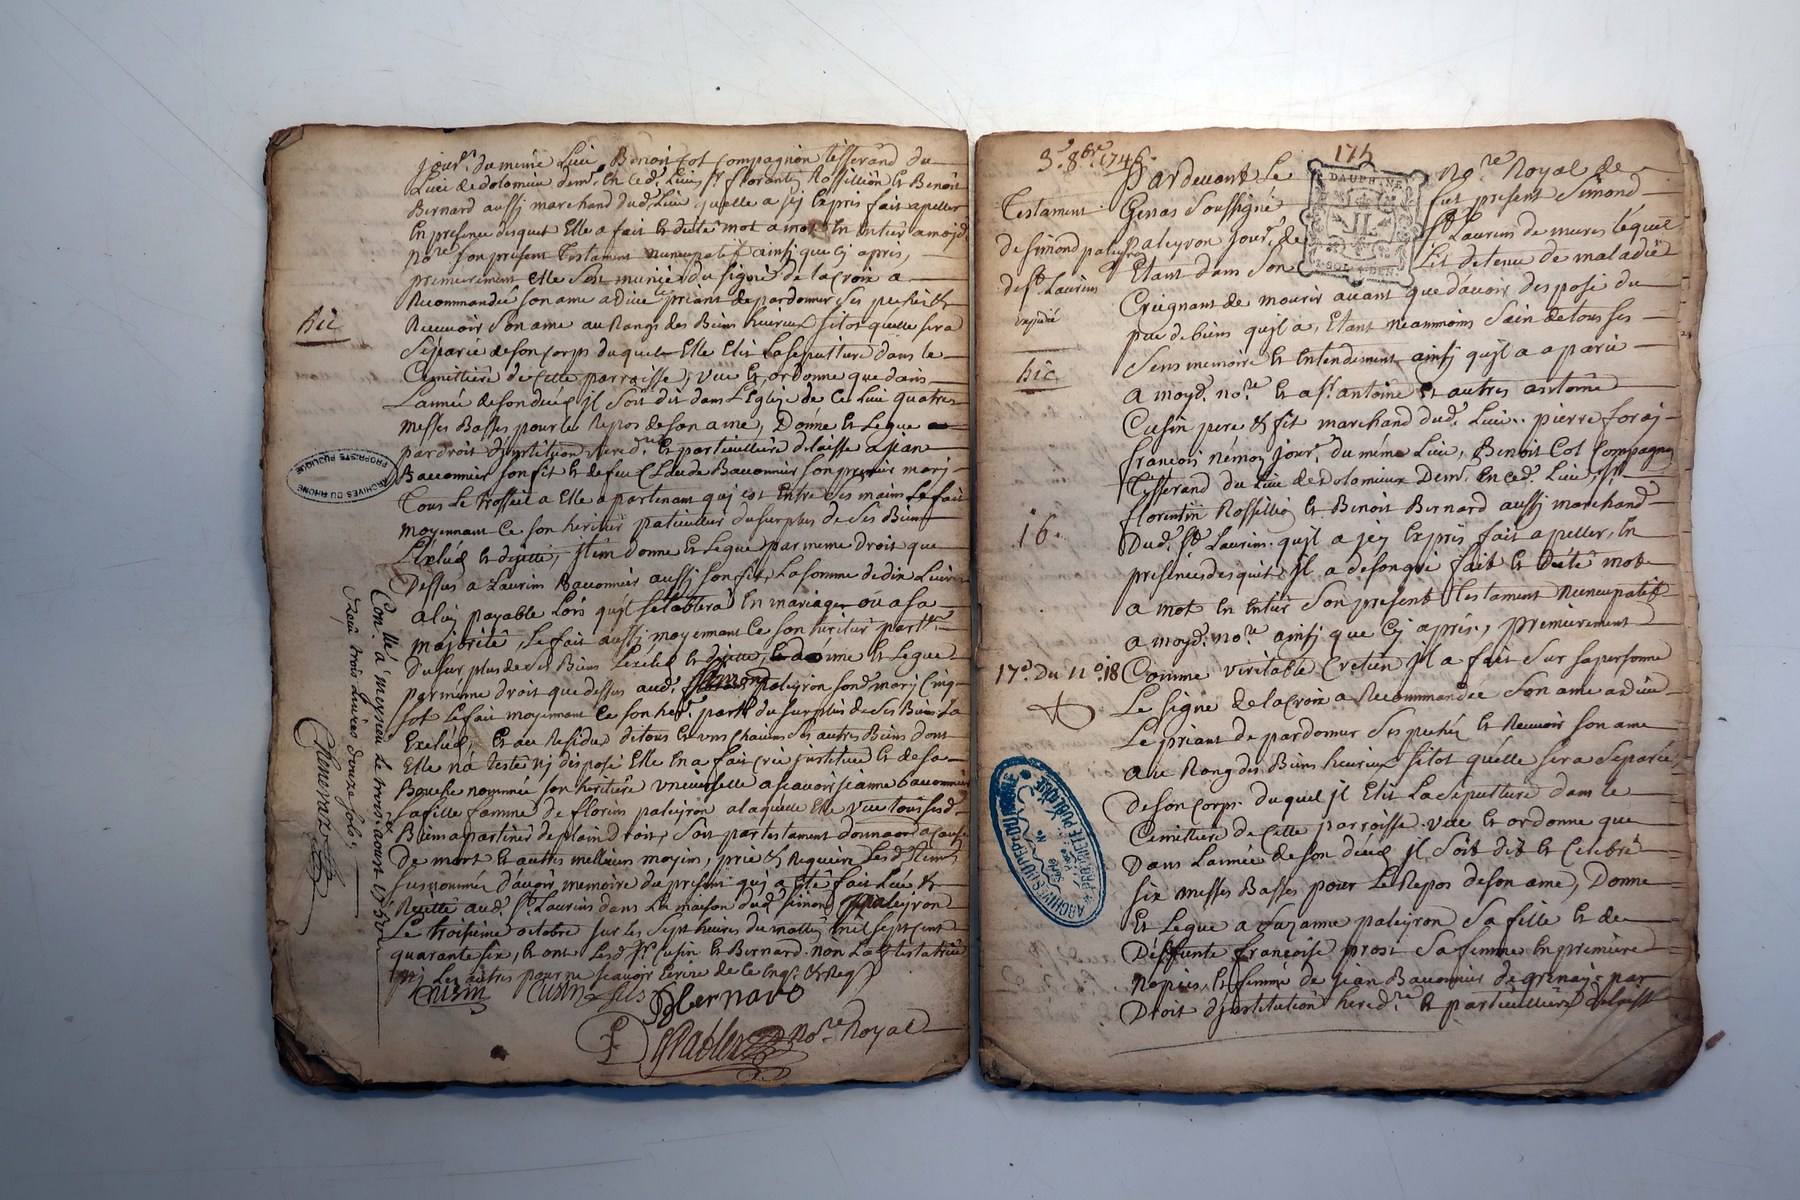 Jour.r du meme Lieu, Benoit Cot Compagnon tesserand du
Lieu de dolomieu dem.t En ced.t Lieu, s.r florantin Rossillion Et Benoit
Bernard aussj marchand dud. Lieu qu'elle a jej Expris fait apeller
En presence desquels Elle a fait Et dicté mot a mot En Entier a mojd.
no.re son présent Testament nuncupatif ainsj que cj après,
premierement Elle s'est munie du signe de la Croix a
Recommandée son ame a dieu le priant de pardonner ses pechés &
Recevoir son ame au Rangs des Bien heureux sitot qu'elle sera
Séparée de son Corps duquel Elle Elit La sepulture dans le
Cemittière de Cette parroisse, veu Et ordonne que dans
L'année de son deces jl soit dit dans L'Eglize de Ce Lieu quatres
messes Basses pour le Repos de son ame, Donne Et Legue
par droit d'jnstitution hered.re Et particulliere delaisse a jean
Bauonnier son fit Et de feu Claude Bauonnier son premier marj
Tous Le trosseil a Elle apartenant quj est Entre ses mains Le fait
moyennant Ce son heritier particulier du surplus de ses Biens
L'exlud Et dejette, jtem donne Et Legue par meme droit que
Dessus a Laurins Bauonnier aussj son fit, La somme de dix Livres
a luj payable Lors qu'jl s'etablira En mariage ou a sa
majorité, Le fait aussj moyennant Ce son heritier part.er
Du surplus de ses Biens L'exlud Et dejette, Donne Et Legue
par meme droit que dessus aud. simond paleyron sond. marj Cinq
sol Le fait moyennant Ce son her. part.r du surplus de ses Biens La
Exclud, Et au Residu de tous Et uns Chacuns ses autres Biens dont
Elle n'a testé nj desposé Elle En a fait Crée jnstitue Et de sa
Bouche nommée son heritière universelle a scavoir jeanne bauonnier
sa fille famme de florin paleyron a laquelle Elle veu tous sesd.
Biens apartiner de plain droit, soit par testament donnaon a cause
De mort Et autres melleurs moyins, prie & Requiert Les d. temoins
susnommés d'avoir memoire du présent quj a été fait Leu &
Recitté aud. s.t Laurins dans La maison dud. simond paleyron
Le troisieme octobre sur les sept heures du mattin mil sept cent
quarante six, Et ont Lesd. s.rs Cusin et Bernard non La testatrice
nj Les autres pour ne scavoir Ecrire de Ce Enq. & Req.
Cusin Cusin fils B Bernard
no.re Royal
hic
Con.llé à meyrieu le trois aoust 1750
Reçu trois Livres douze sols
Chenevaz
ARCHIVES DU RHONE
PROPRIÉTÉ PUBLIQUE
3.e 8bre 1746.
175
DAUPHINE
Pardevant Le no.re Royal de
Genas soussigné fut present simond
paleyron jour.r de s.t Laurins de mures lequel
Etant dans son Lit detenu de maladie
Creignant de mourir avant que d'avoir desposé du
peu de biens qu'jl a, Etant neanmoins sain de tous ses
sens memoire Et Entendement ainsj qu'jl a aparu
a moyd. no.re Et as.r antoine Et autres antoine
Cusin pere & fit marchand dud. Lieu, pierre foraj
francois némoz jour.r du même Lieu, Benoit Cot Compagnon
Tesserand du Lieu de Dolomieux Dem.t En ced. Lieu, s.r
florentin Rossillio Et Benoit Bernard aussj marchand
Dud. s.t Laurins qu'jl a jej Expris fait apeller, En
présence desquels jl a de son gré fait Et dicté mot
a mot En Entier son present Testament nuncupatif
a moyd. no.re ainsj que cj apris, premierement
Comme véritable Cretien jl a fait sur sa personne
Le signe de la Croix a Recommandée son ame a dieu
Le priant de pardonner ses pechés Et Recevoir son ame
au Rang des Bien heureux sitot qu'elle sera separée
de son Corps duquel jl Elit La sepulture dans le
Cemittiere de Cette parroisse veu Et ordonne que
Dans L'année de son décéd jl soit dit Et Celebré
six messes Basses pour Le Repos de son ame, Donne
Et Legue a suzanne paleyron sa fille Et de
Deffunte francoise prost sa femme En premiere
Nopces, Et femme de jean Bauonnier de grenay par
Droit d'jnstitution hered.re Et particulliere delaisse
Testament
de simond paleyron
de s.t Laurins
expedié
hic
16.
17.e Du 11.e 18
ARCHIVES DU DEP. DU RHONE
PROPRIÉTÉ PUBLIQUE